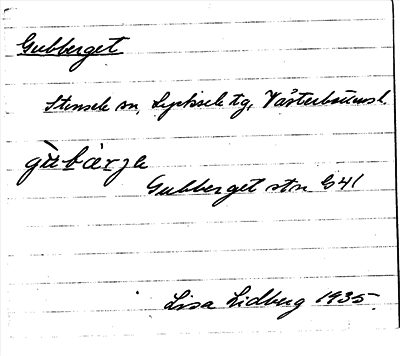 Gubberget
Stensele sn, Lycksele tg, Västerbottensl.
gu̇bärje
Gubberget stn G 41
Lisa Lidberg 1935.